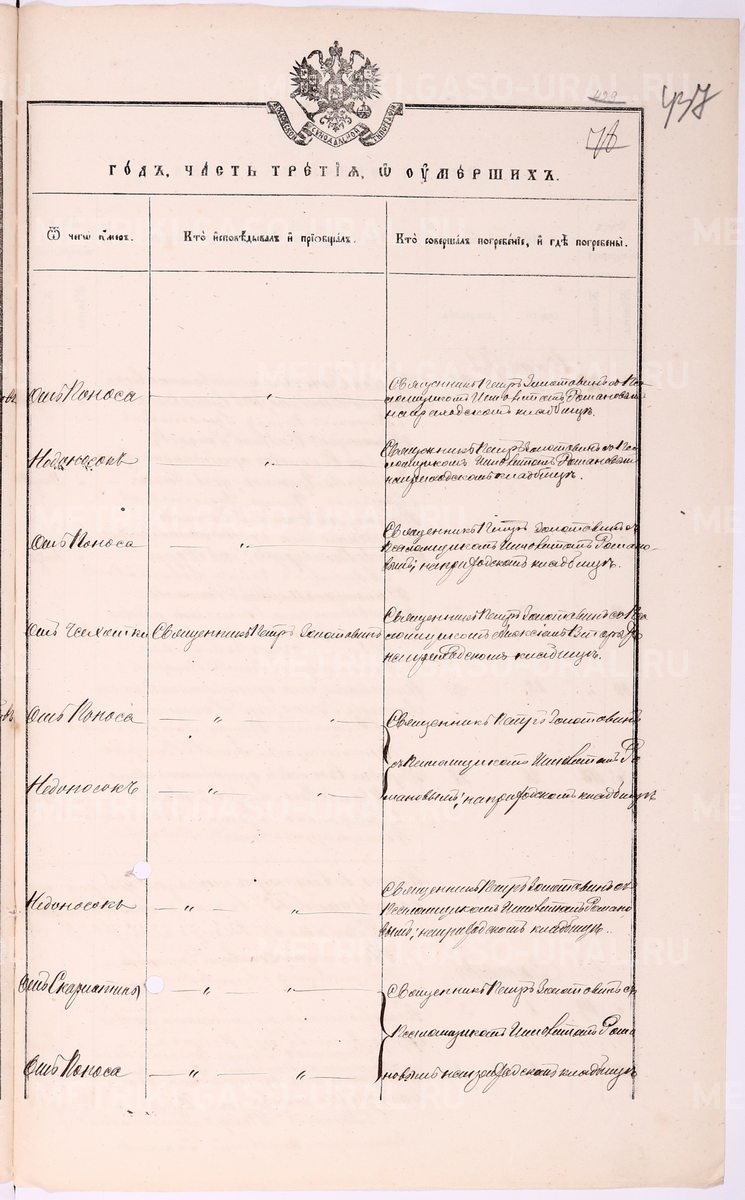 429
437
76
ГОДЪ, ЧАСТЬ ТРЕТІЯ, Ѿ ОУМЕРШИХЪ.
Ѿ чегѡ умеръ.
Кто исповѣдывалъ и пріобщалъ.
Кто совершалъ погребеніе, и гдѣ погребены.
Отъ Поноса
Священникъ Петръ Золотавинъ съ Пса-
ломщикомъ Иннокентіемъ Романовымъ
на приходскомъ кладбищѣ.
Недоносокъ
Священникъ Петръ Золотавинъ съ Пса-
ломщикомъ Романовымъ
на приходскомъ кладбищѣ.
Отъ Поноса
Священникъ Петръ Золотавинъ съ
Псаломщикомъ Романо-
вымъ; на приходскомъ кладбищѣ.
Отъ Чахотки
Священникъ Петръ Золотавинъ
Священникъ Петръ Золотавинъ съ Пса
ломщикомъ
на приходскомъ кладбищѣ.
Отъ Поноса
Священникъ Петръ Золотавинъ
Недоносокъ
съ Псаломщикомъ Ро
мановымъ; на приходскомъ кладбищѣ
Недоносокъ
Священникъ Петръ Золотавинъ съ
Псаломщикомъ Романо
вымъ; на приходскомъ кладбищѣ.
Отъ Скарлатины
Священникъ Петръ Золотавинъ съ
Псаломщикомъ Рома
Отъ Поноса
новымъ на приходскомъ кладбищѣ